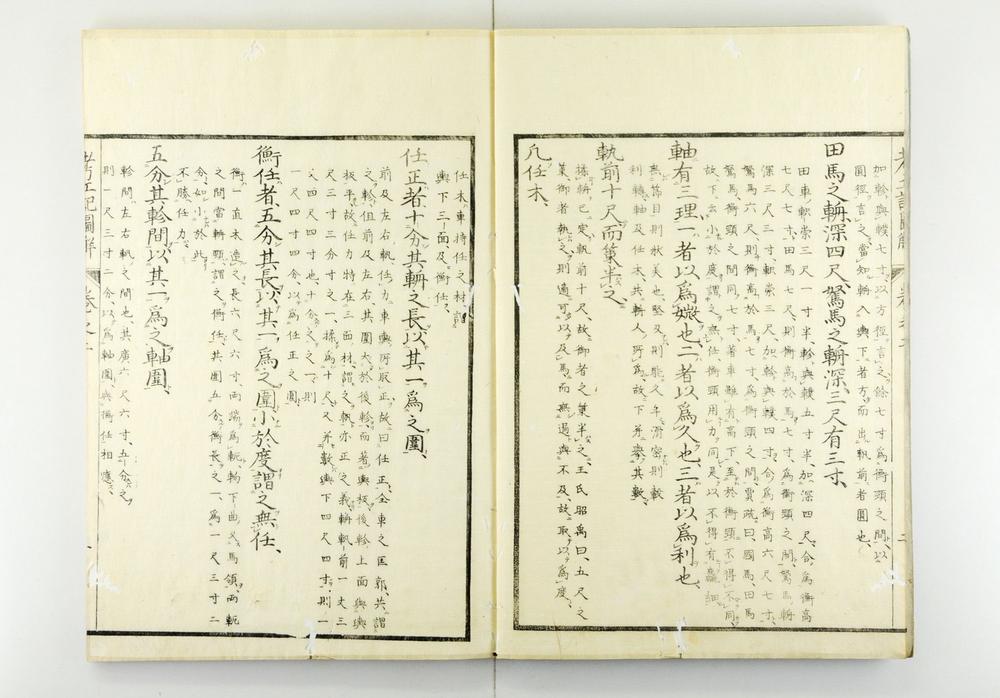 加軫與轐七寸、以方徑言之、餘七寸爲衡頸之間、以
圓徑言之、當知輈入輿下者方、而出軓前者圓也、
田馬之輈深四尺、駑馬之輈深三尺有三寸、
田車軹崇三尺一寸半、軫與轐五寸半、加深四尺合爲衡高
七尺七寸、田馬七尺、則衡高於馬七寸、爲衡頸之間、駑馬輈
深三尺三寸、軹崇三尺、加軫與轐四寸、合爲衡高六尺七寸、
駑馬六尺、則衡高於馬七寸、爲衡頸之間、賈疏曰、國馬、田馬
駑馬、衡頸之間、同七寸、著車雖有高下、至於衡頸不得不同、
故下云小於度謂之無任、衡頸用力同、是以不得有麤細、
軸有三理、一者以爲媺也、二者以爲久也、三者以爲利也、
無節目則媺美也、堅及則能久平滑密則轂
利轉、軸及任木共輈人所爲、故下并參其數、
軓前十尺、而策半之、
揉輈已定、軓前十尺、故御者之策半之、王氏昭禹曰、五尺之
策、御者執之、則適可以及馬、而無過與不及、故取以爲度、
凡任木、
任木車持任之材、謂
輿下三面及衡任、
任正者十分其輈之長、以其一爲之圍、
前及左右軓任力、車輿所取正、故曰任正、全車之匡郭、共謂
之軫、但前及左右、其圍大於後軫、而著輿板、後軫上面與輿
板平、故任力特在三面材、謂之軓、亦正之義、輈軓前一丈三
尺三寸三分寸之一、揉爲十尺、又并數輿下四尺四寸、則一
丈四尺四寸也、十分之一、則
一尺四寸四分、以爲任正之圍、
衡任者、五分其長、以其一爲之圍、小於度、謂之無任、
衡一直木造之、長六尺六寸、兩端爲軛、軥下曲叉馬領、兩軛
之間當輈頸、謂之衡任、其圍五分衡長之一、爲一尺三寸二
分、如小於此、
不勝任力、
五分其軫間、以其一爲之軸圍、
軫間、左右軓之間也、其廣六尺六寸、五分之、
則一尺三寸二分、以爲軸圍、與衡任相應、